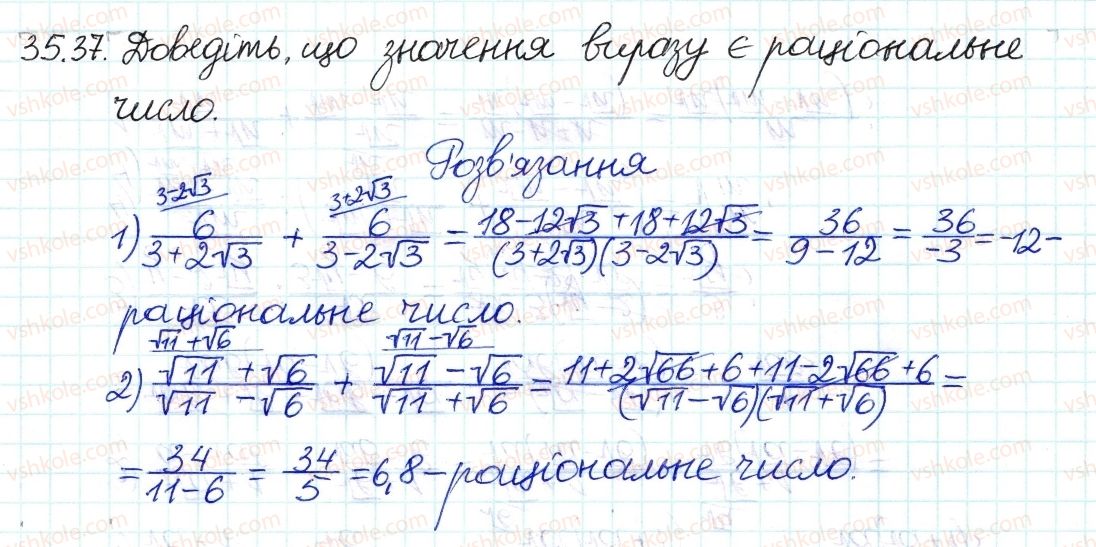 35.37. Доведіть, що значення виразу є раціональне
число.
Розв'язання
1) 6/(3+2√3) (3-2√3) + 6/(3-2√3) (3+2√3) = (18-12√3+18+12√3)/((3+2√3)(3-2√3)) = 36/(9-12) = 36/-3 = -12 -
раціональне число.
2) (√11+√6)/(√11-√6) (√11+√6) + (√11-√6)/(√11+√6) (√11-√6) = (11+2√66+6+11-2√66+6)/((√11-√6)(√11+√6)) =
= 34/(11-6) = 34/5 = 6,8 - раціональне число.